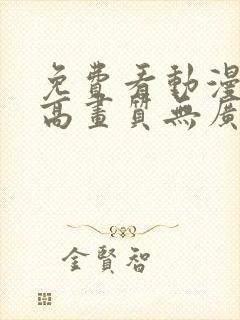 免費看動漫
高畫質無廣
金賢智